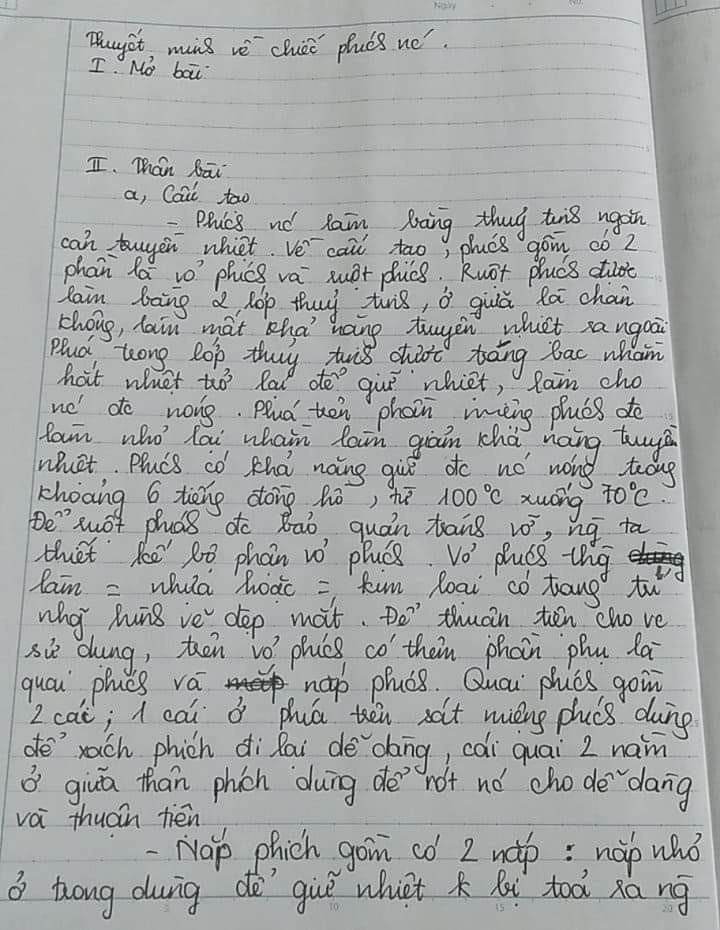 Thuyết minh về chiếc phích nć.
I. Mở bài
II. Thân bài
a, Cấu tạo
- Phích nć làm bằng thuỷ tinh ngăn
cản truyền nhiệt. Về cấu tạo, phích gồm có 2
phần là vỏ phích và ruột phích. Ruột phích được
làm bằng 2 lớp thuỷ tinh, ở giữa là chân
không, làm mất khả năng truyền nhiệt ra ngoài
Phía trong lớp thuỷ tinh được tráng bạc nhằm
hắt nhiệt trở lại để giữ nhiệt, làm cho
nć đc nóng. Phía trên phần miệng phích đc
làm nhỏ lại nhằm làm giảm khả năng truyền
nhiệt. Phích có khả năng giữ đc nć nóng trong
khoảng 6 tiếng đồng hồ, từ 100°C xuống 70°C.
Để ruột phích đc bảo quản tránh vỡ, ng ta
thiết kế bộ phận vỏ phích. Vỏ phích thg
làm = nhựa hoặc = kim loại có trang trí
nhg hình vẽ đẹp mắt. Để thuận tiện cho vc
sử dụng, trên vỏ phích có thêm phần phụ là
quai phích và nắp phích. Quai phích gồm
2 cái; 1 cái ở phía trên sát miệng phích dùng
để xách phích đi lại dễ dàng, cái quai 2 nằm
ở giữa thân phích dùng để rót nć cho dễ dàng
và thuận tiện
- Nắp phích gồm có 2 nắp: nắp nhỏ
ở trong dùng để giữ nhiệt k bị toả ra ng